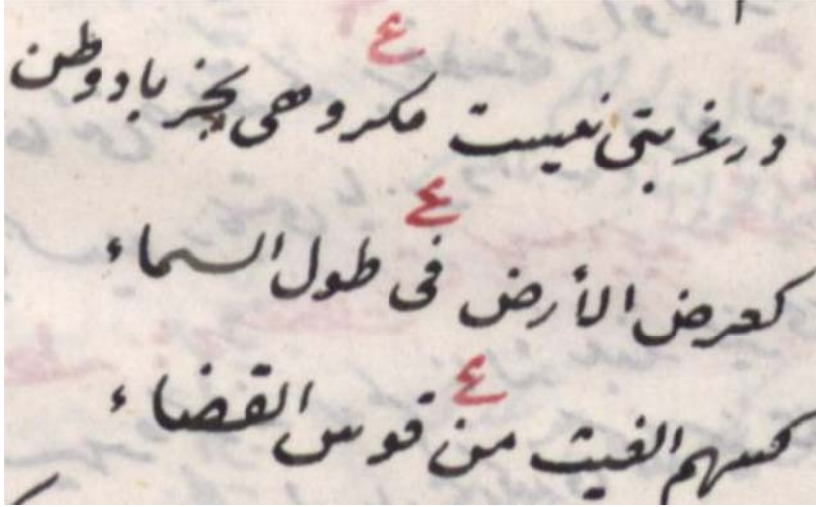 ع
در غربتی نیست مکروهی بجز یاد وطن
ع
کعرض الأرض فی طول السماء
ع
کسهم الغیث من قوس القضاء